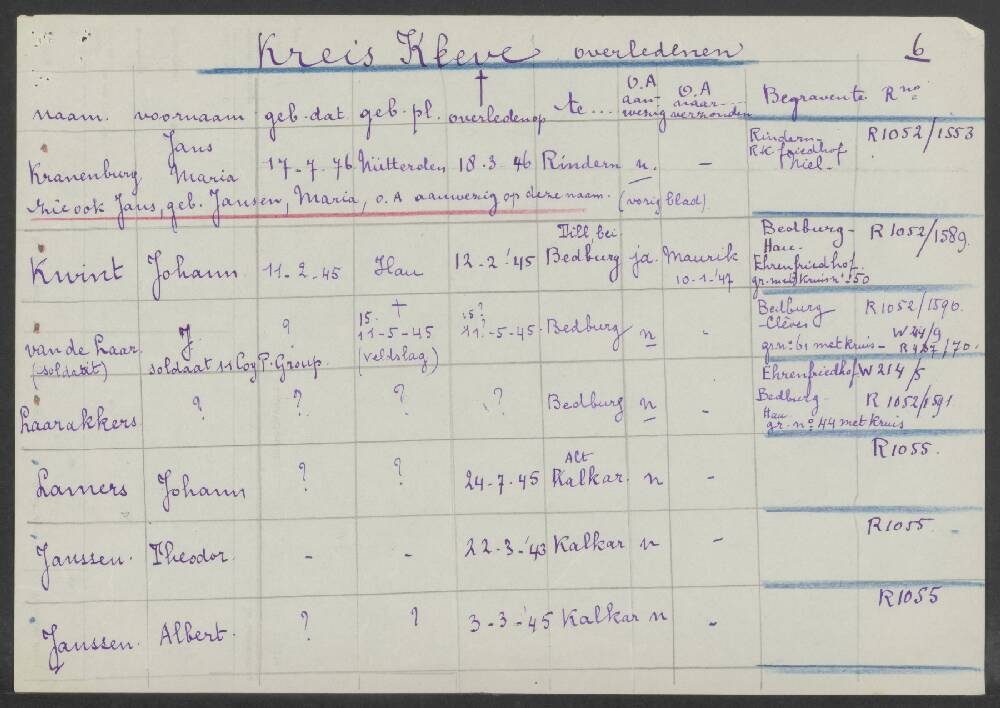 Kreis Kleve overledenen 6
naam. voornaam geb.dat. geb.pl. † overleden op te... O.A aanwezig O.A naar verzonden Begraven te R no
Kranenburg Jans Maria 17-7-76 Nütterden 18-3-46 Rindern n. - Rindern R.K. friedhof Niel- R1052/1553
zie ook Jans, geb. Jansen, Maria, O.A aanwezig op deze naam. (vorig blad)
Kwint Johann 11-2-45 Hau 12-2-'45 Till bei Bedburg ja. Maurik 10-1-'47 Bedburg-Hau- Ehrenfriedhof. gr. met kruis no 50 R1052/1589.
van de Laar. (soldaat) J. soldaat 11 Coy P. Group. ? 15. † 11-5-45 (veldslag) 15.? 11-5-45. Bedburg n - Bedburg -Clèves gr.no 61 met kruis- R1052/1590. W 214/9
Laarakkers ? ? ? ? Bedburg n - Ehrenfriedhof Bedburg-Hau gr. no 44 met kruis W214/5 R1052/1591
Lamers Johann ? ? 24-7-45 Alt Kalkar. n - R1055.
Janssen. Theodor. - - 22-3-'43 Kalkar n - R1055.
Janssen. Albert. ? ? 3-3-'45 Kalkar n - R1055